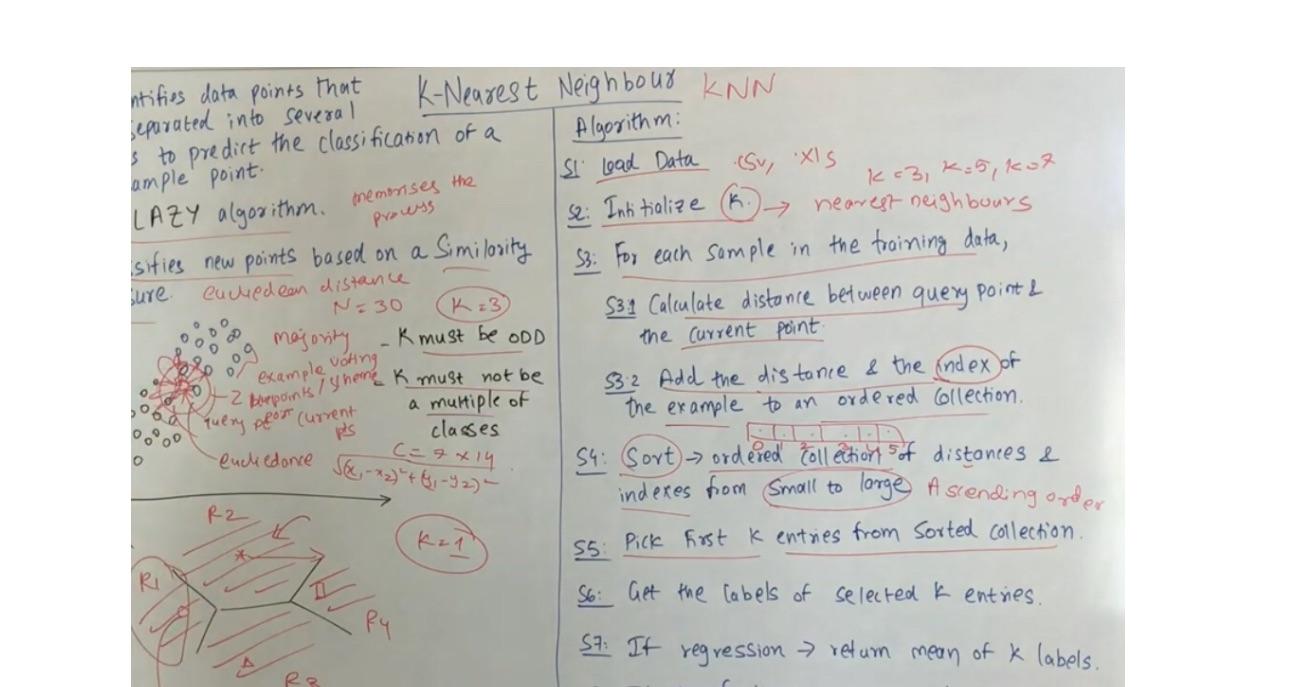 K-Nearest Neighbour KNN
ntifies data points that
separated into several
s to predict the classification of a
ample point.
LAZY algorithm. memorises the
process
sifies new points based on a Similarity
sure. eucliedean distance
N = 30 K=3
majority - K must be ODD
example voting
- K must not be
a multiple of
classes
query current
pts
C = 7 x 14
√(x₁-x₂)²+(y₁-y₂)²
R2
K=1
R1
R4
R3
Algorithm:
S1: Load Data .csv, .xls
K=3, K=5, K=7
S2: Initialize K. → nearest neighbours
S3: For each sample in the training data,
S3.1 Calculate distance between query point &
the current point.
S3.2 Add the distance & the index of
the example to an ordered collection.
S4: Sort → ordered collection of distances &
indexes from Small to large Ascending order
S5: Pick first K entries from Sorted collection.
S6: Get the labels of selected K entries.
S7: If regression → return mean of K labels.